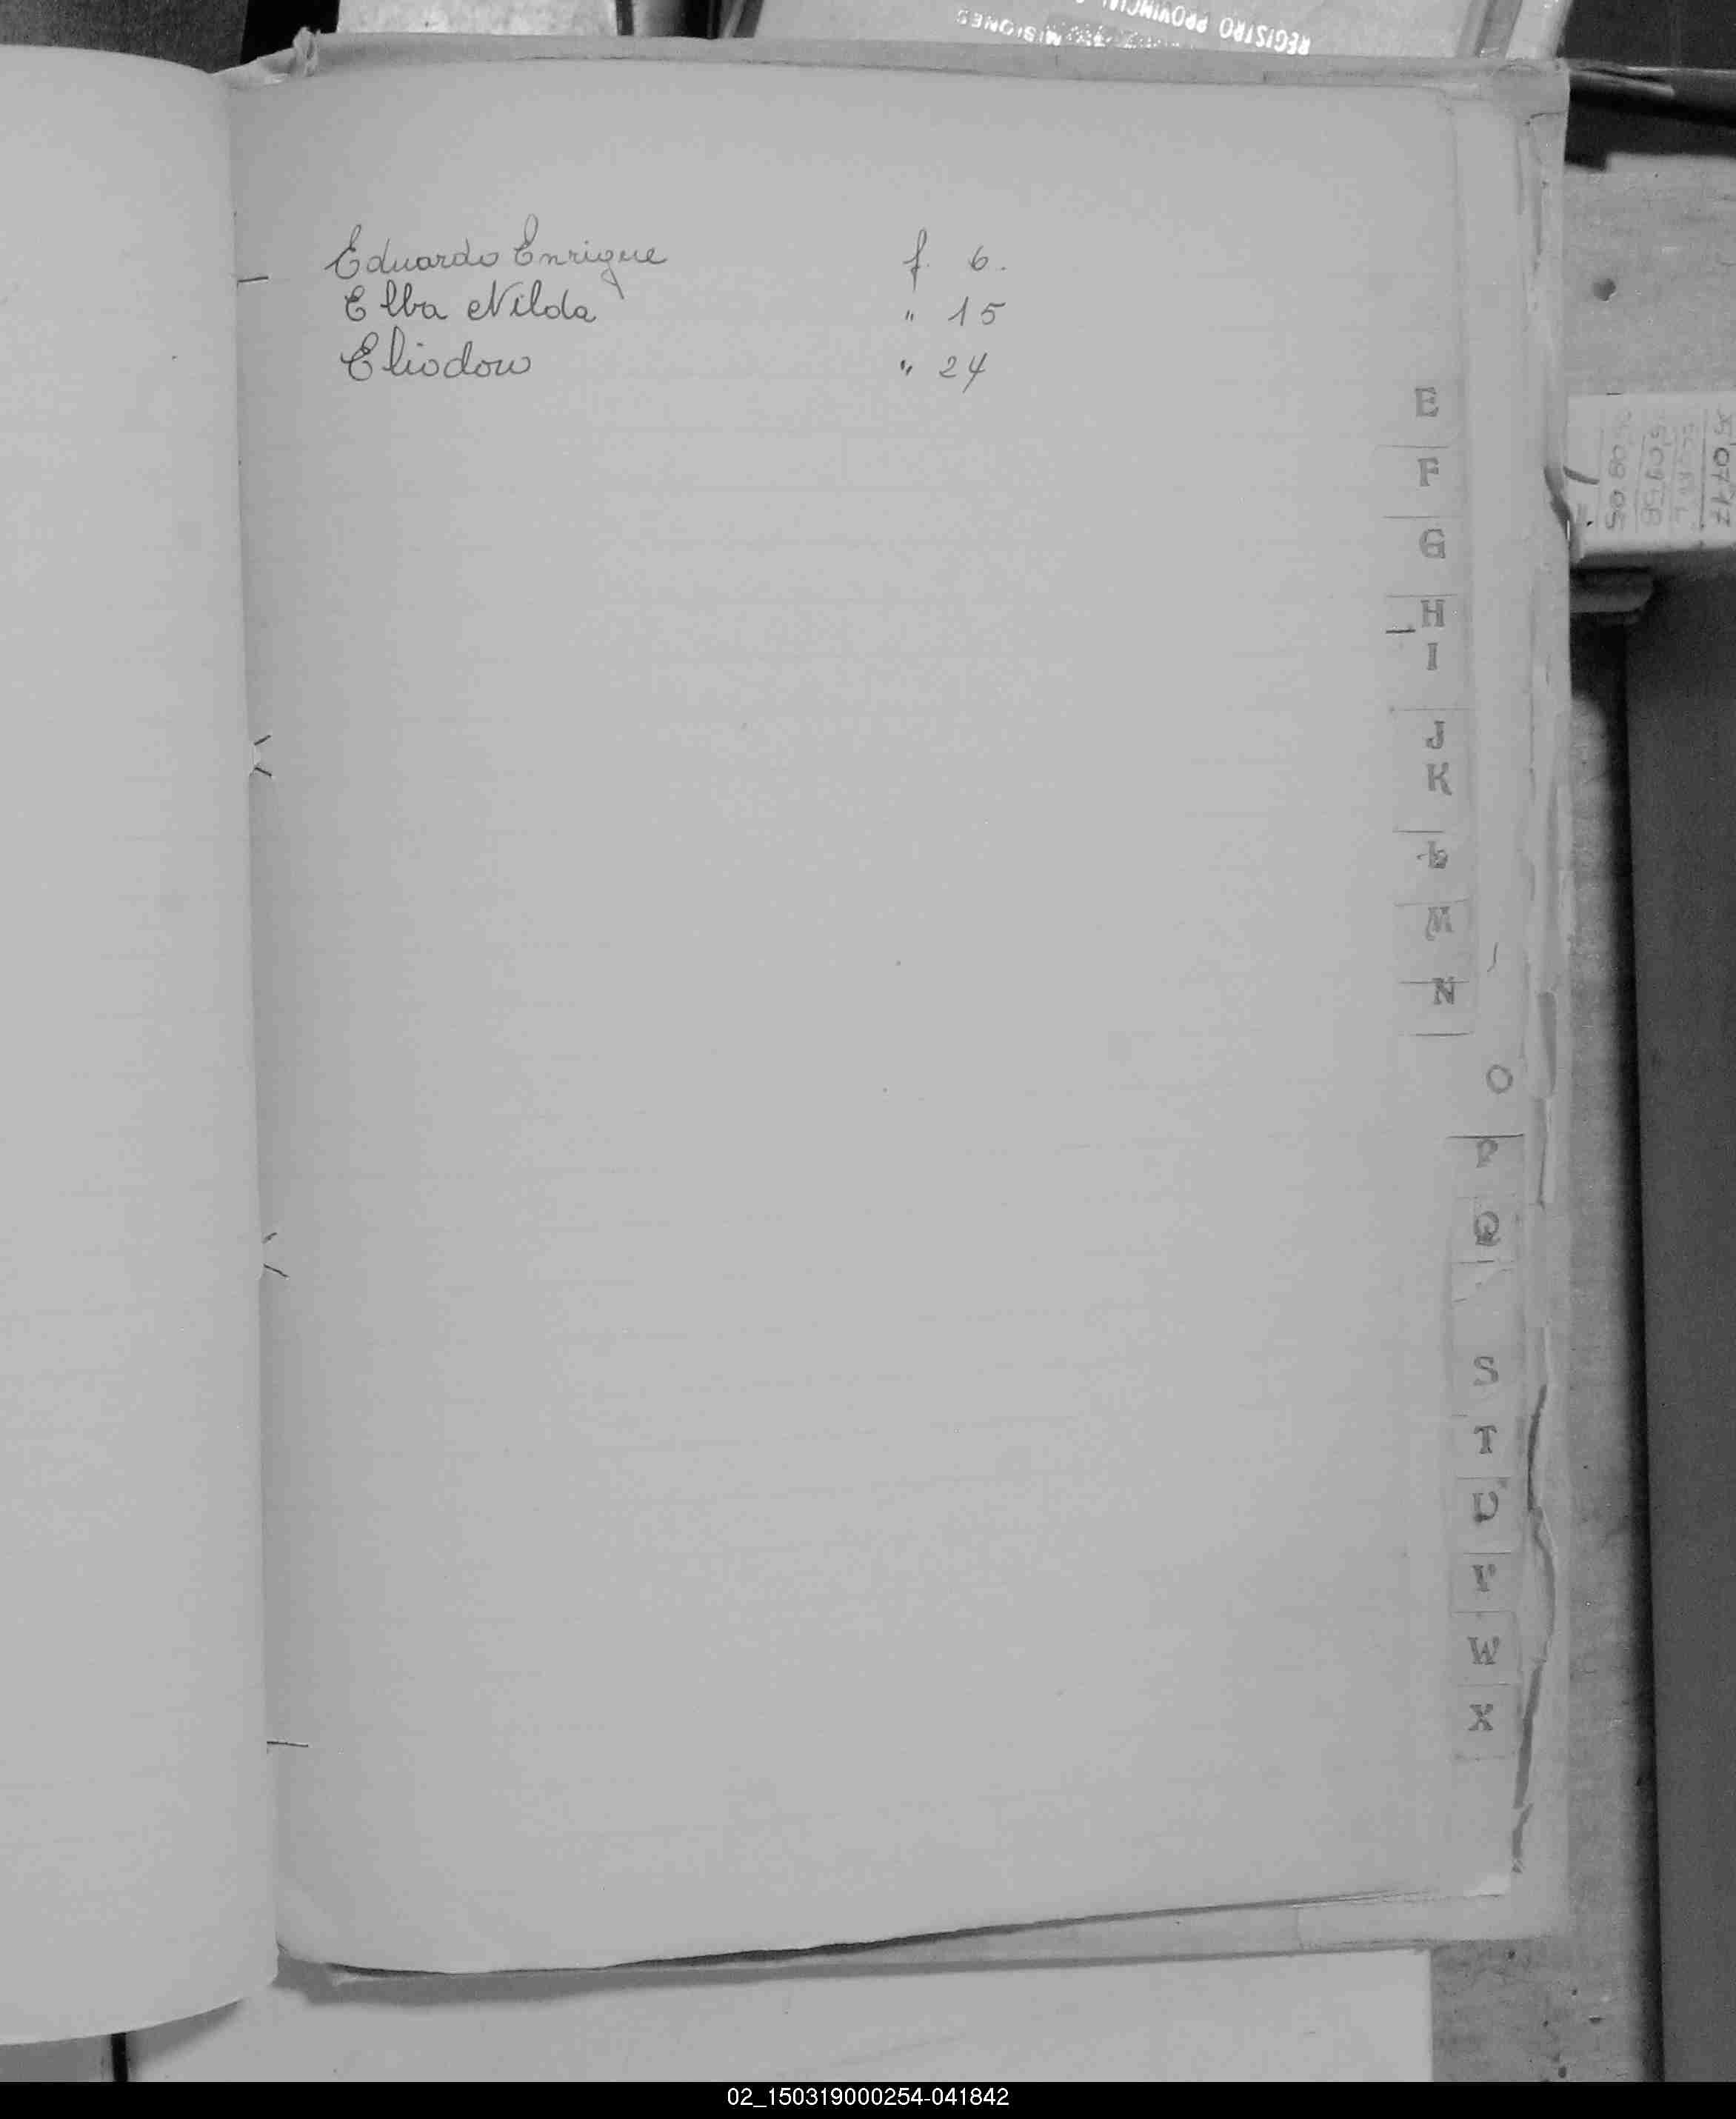 REGISTRO PROVINCIAL
MISIONES
Eduardo Enrique f. 6.
Elba Nilda " 15
Eliodoro " 24
E
F
G
H
I
J
K
L
M
N
O
P
Q
S
T
U
V
W
X
02_150319000254-041842